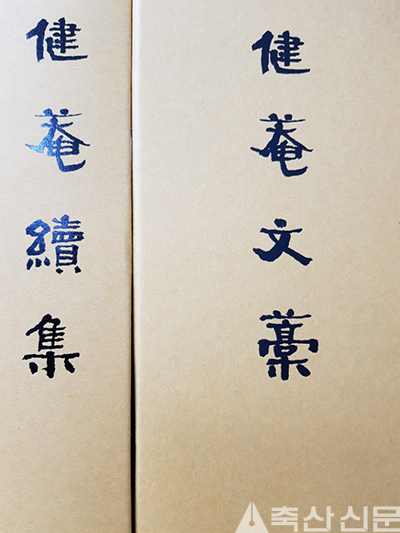 健菴文藁
健菴續集
축산신문